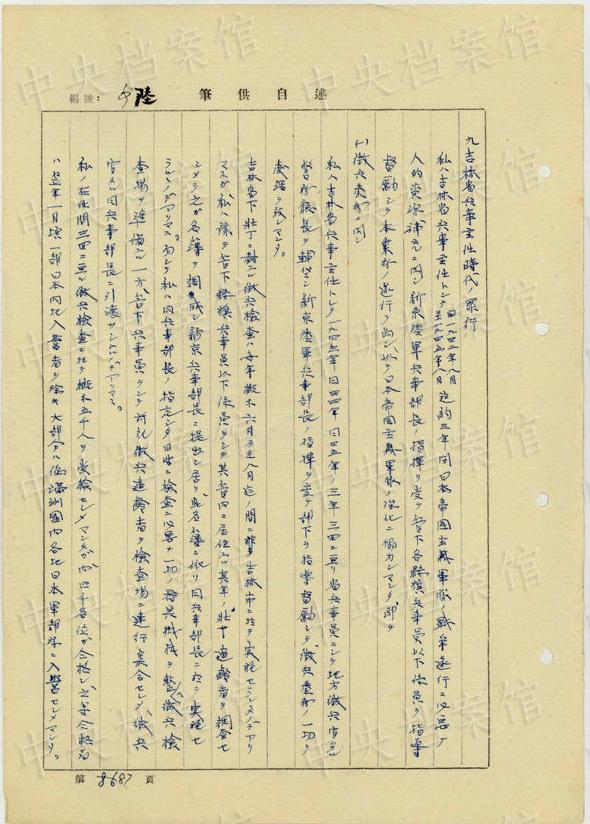 述自供筆
編號：
陸
九吉林省兵事主任時代ノ罪行
私ハ吉林省兵事主任トシテ
自一九四二年八月
至一九四五年八月
迄約三年間日本帝国主義軍隊ノ戦争遂行ニ必要ナ
人的資源補充ニ関シ新京陸軍兵事部長ノ指揮ヲ受ケ管下各縣旗兵事員以下係員ヲ指導
督励シテ本業務ノ遂行ヲ図リ以テ日本帝国主義軍隊ノ強化ニ協力シマシタ即チ
(一)徴兵業務ニ関シ
私ハ吉林省兵事主任トシテ一九四三年同四四年同四五年ノ三年三回ニ亘リ省兵事員ニシテ地方徴兵官タル
警務廳長ヲ輔佐シ新京陸軍兵事部長ノ指揮ヲ受ケ部下ヲ指導督励シテ徴兵業務ノ一切ヲ
處理致シマシタ。
吉林省下壮丁ニ対スル徴兵検査ハ毎年概ネ六月ヨリ八月迄ノ間ニ
吉林市ニ於テ実施セラレタノデアリ
マスガ私ハ豫メ管下縣旗兵事員以下係員ヲシテ其管内ニ居住スル其年ノ壮丁適齢者ヲ調査セ
シメ之ガ名簿ヲ調製シ新京兵事部長ニ提出シ居リ
名簿ニ依リ同兵事部長ニ於テ実施セ
ラルノデアリマス。而シテ私ハ同兵事部長ノ指定シタ日時ニ検査ニ必要ナ一切ノ器具機械ヲ整ヘ徴兵検
査場ヲ準備スル一方管下兵事員ヲシテ前記徴兵適齢者ヲ検査場ニ連行集合セシメ徴兵
官タル同兵事部長ニ引渡サシムルノデアリマス。
私ノ在任間三回ニ亘ル徴兵検査ニ於テ概ネ五千人ヲ受検セシメマシタガ内四千名位ガ合格シ
合格者
ハ翌年一月頃一部日本内地入営者ヲ除キ大部分ハ偽満洲國内各地日本軍部隊ニ入営セシメマシタ。
第 8687 頁
中央档案馆